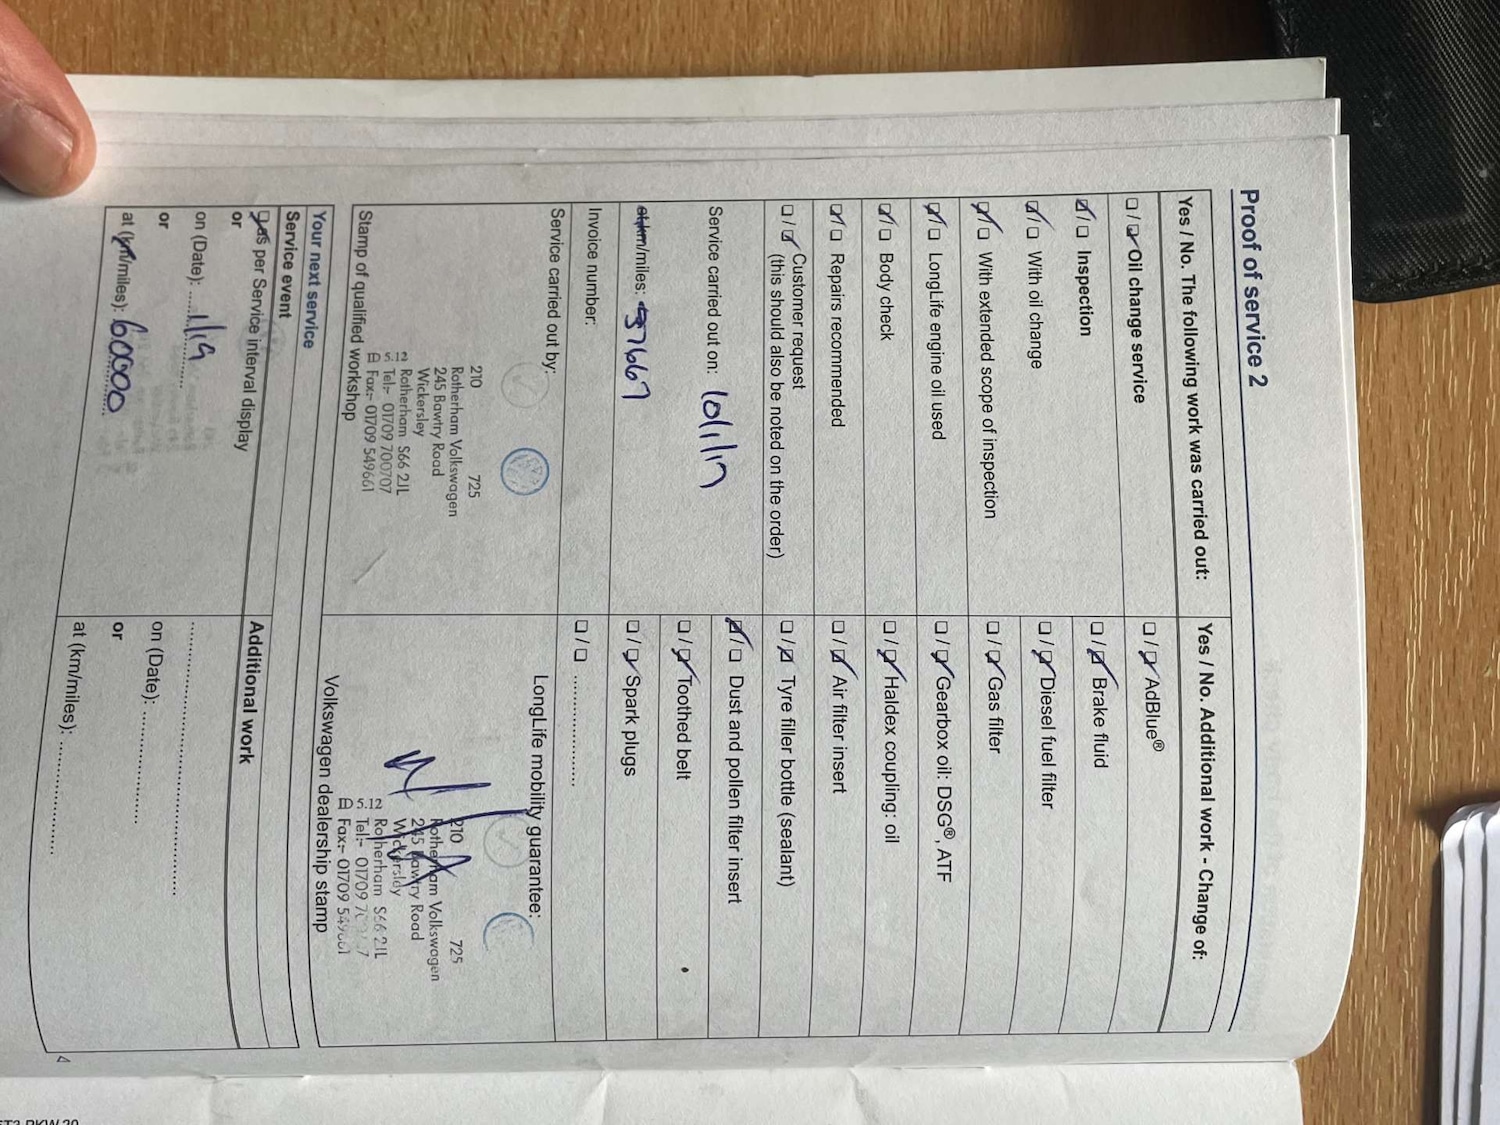 Proof of service 2
Yes / No. The following work was carried out:
☐ / ☑ Oil change service
☑ / ☐ Inspection
☑ / ☐ With oil change
☑ / ☐ With extended scope of inspection
☑ / ☐ LongLife engine oil used
☑ / ☐ Body check
☑ / ☐ Repairs recommended
☐ / ☑ Customer request
(this should also be noted on the order)
Service carried out on: 10/1/17
at km/miles: 37667
Invoice number:
Service carried out by:
210 725
Rotherham Volkswagen
245 Bawtry Road
Wickersley
Rotherham S66 2JL
Tel:- 01709 700707
ID 5.12 Fax:- 01709 549661
Stamp of qualified workshop
Yes / No. Additional work - Change of:
☐ / ☑ AdBlue®
☐ / ☑ Brake fluid
☐ / ☑ Diesel fuel filter
☐ / ☑ Gas filter
☐ / ☑ Gearbox oil: DSG®, ATF
☐ / ☑ Haldex coupling: oil
☐ / ☑ Air filter insert
☐ / ☑ Tyre filler bottle (sealant)
☑ / ☐ Dust and pollen filter insert
☐ / ☑ Toothed belt
☐ / ☑ Spark plugs
☐ / ☐ ....................
LongLife mobility guarantee:
N/A
210 725
Rotherham Volkswagen
245 Bawtry Road
Wickersley
Rotherham S66 2JL
Tel:- 01709
ID 5.12 Fax:- 01709
Volkswagen dealership stamp
Your next service
Service event
☑ as per Service interval display
or
on (Date): 1/19
or
at (km/miles): 60000
Additional work
on (Date): ....................
or
at (km/miles): ....................
4